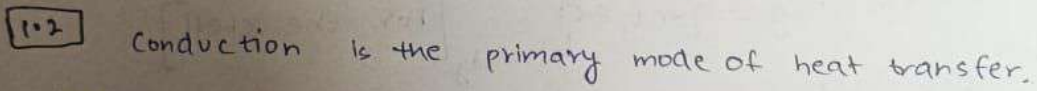 1.2 Conduction is the primary mode of heat transfer.